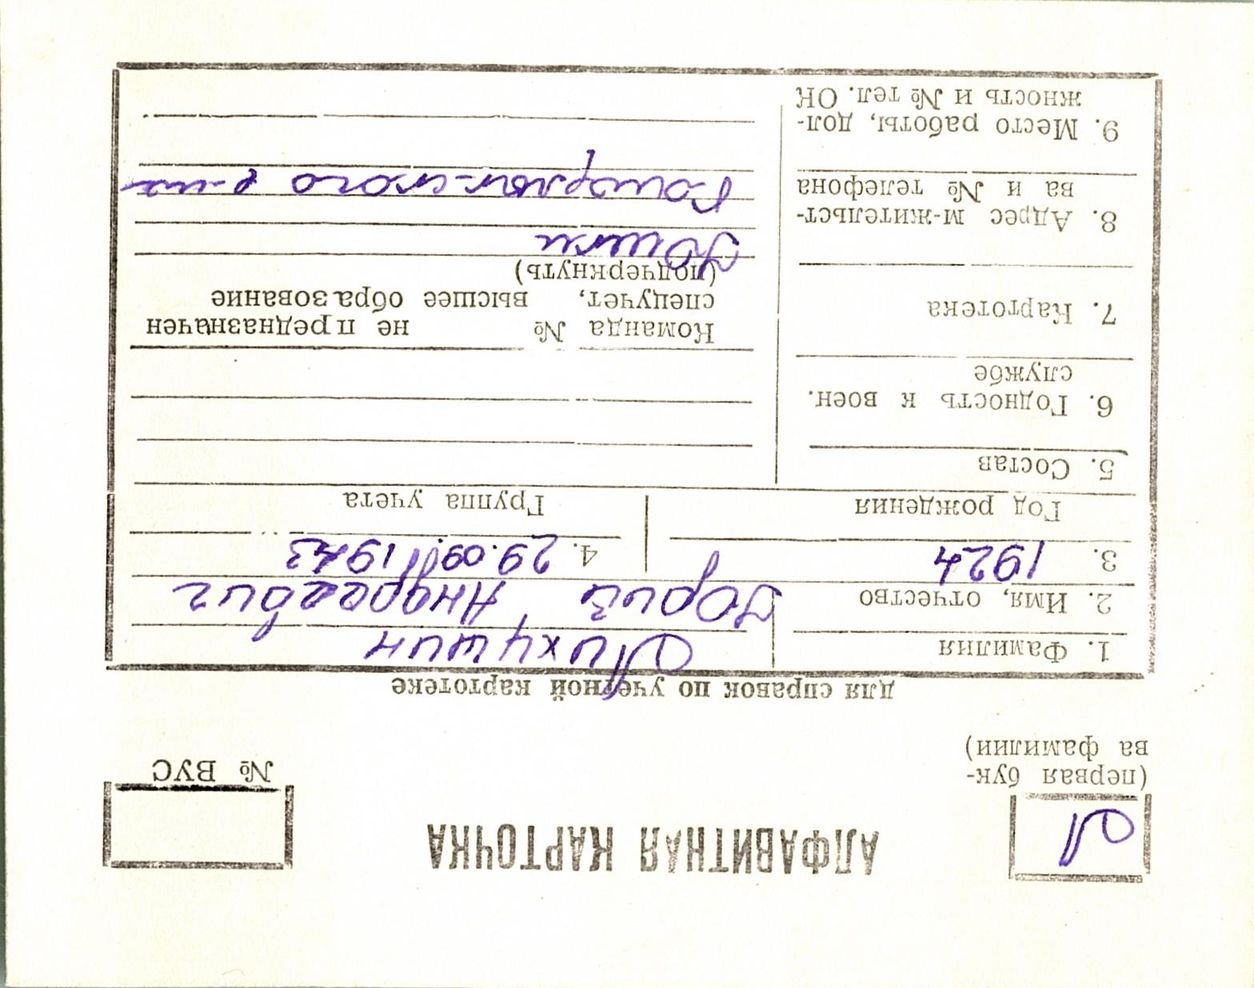 Л
АЛФАВИТНАЯ КАРТОЧКА
(первая бук-
ва фамилии)
№ ВУС
для справок по учетной картотеке
1. Фамилия Лихушин
2. Имя, отчество Юрий Андреевич
3. 1924 4. 29.09.1943
Год рождения Группа учета
5. Состав
6. Годность к воен.
службе
7. Картотека
Команда № не предназначен
спецучет, высшее образование
(подчеркнуть)
8. Адрес м-жительст-
ва и № телефона
9. Место работы, дол-
жность и № тел. ОК